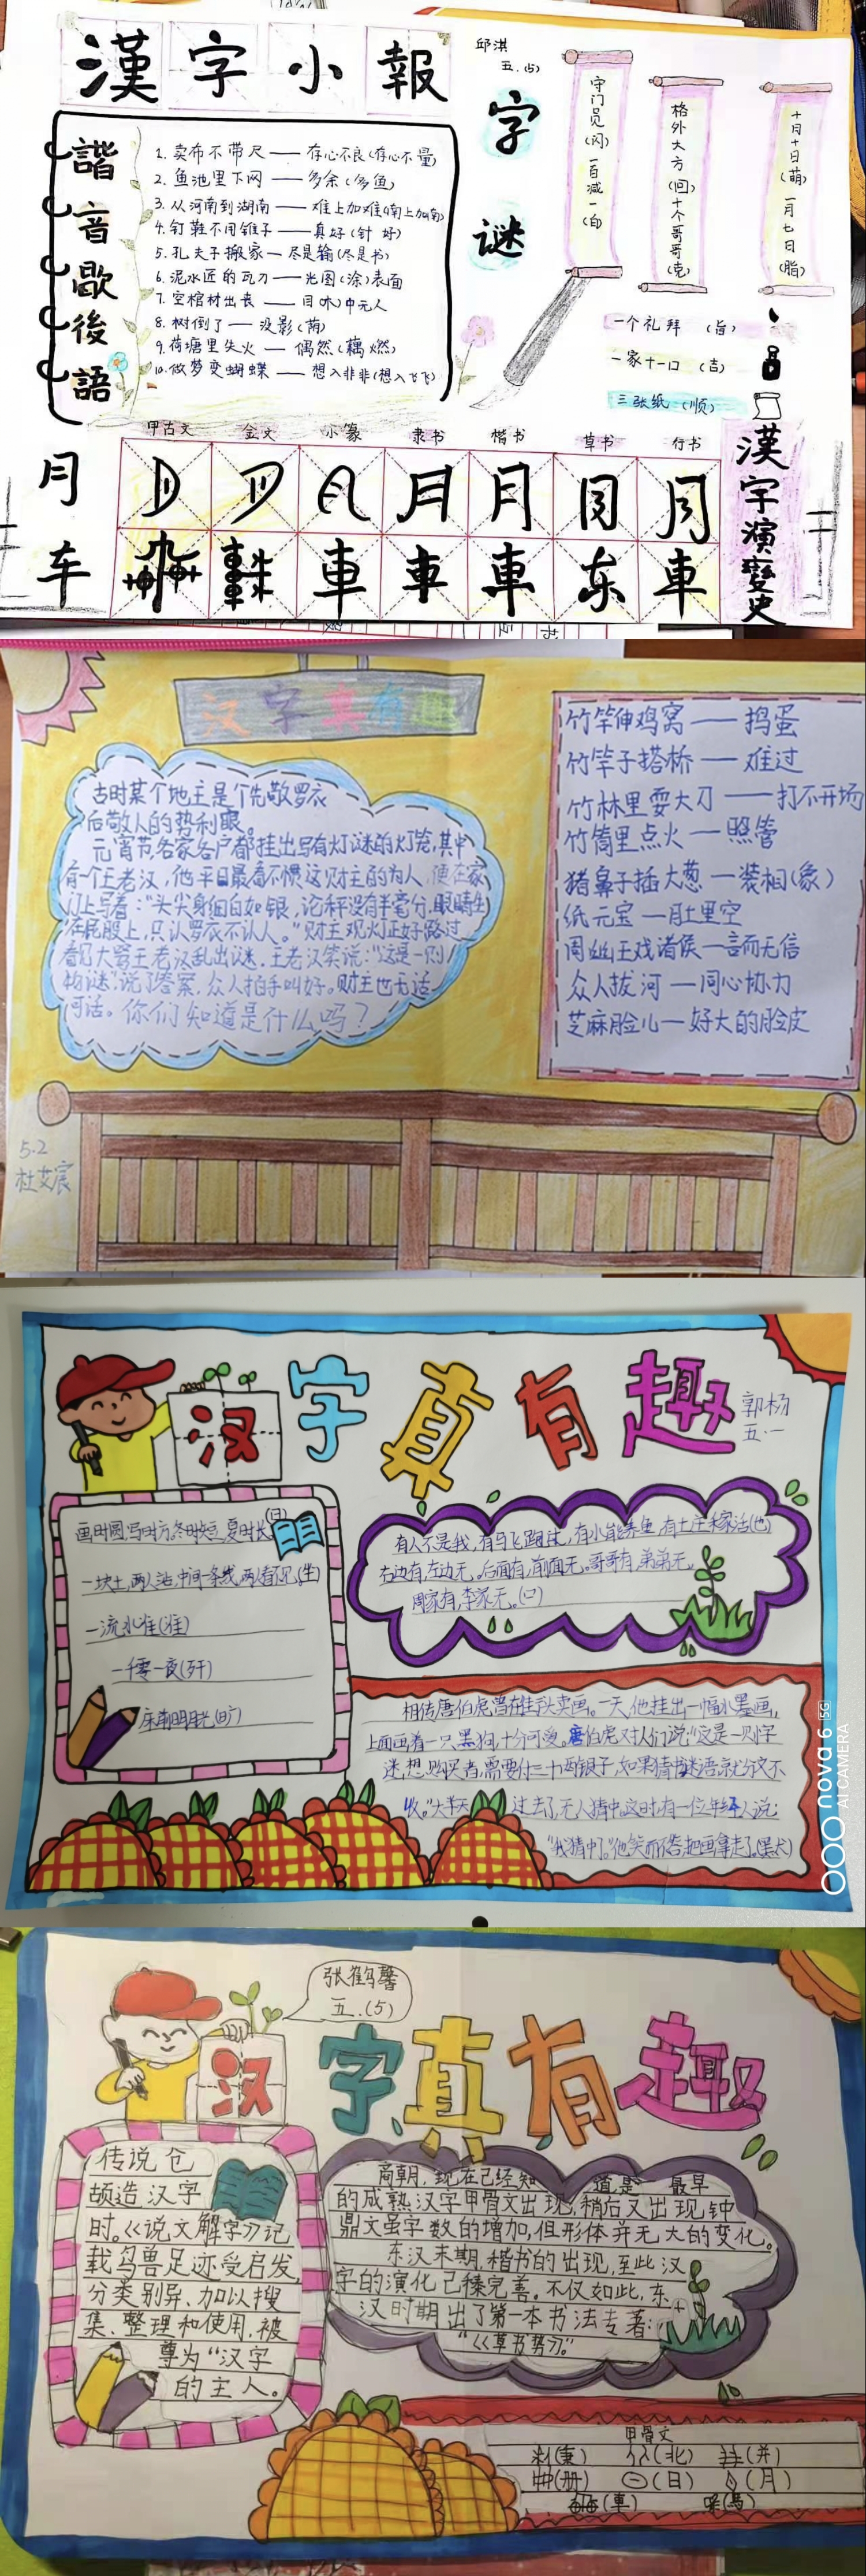 漢字小報
邱淇
五.(5)
諧音歇後語
1. 卖布不带尺——存心不良(存心不量)
2. 鱼池里下网——多余(多鱼)
3. 从河南到湖南——难上加难(南上加南)
4. 钉鞋不用锥子——真好(针好)
5. 孔夫子搬家—尽是输(尽是书)
6. 泥水匠的瓦刀——光图(涂)表面
7. 空棺材出丧——目(木)中无人
8. 树倒了——没影(荫)
9. 荷塘里失火—偶然(藕燃)
10. 做梦变蝴蝶——想入非非(想入飞飞)
字谜
守门员(闪)一百减一(白)
格外大方(回)十个哥哥(克)
十月十日(萌)一月七日(脂)
一个礼拜(旨)
一家十一口(吉)
三张纸(顺)
甲古文 金文 小篆 隶书 楷书 草书 行书
月
车
漢字演變史
汉字真有趣
古时某个地主是个先敬罗衣
后敬人的势利眼。
元宵节,各家各户都挂出写有灯谜的灯笼,其中
有一个王老汉,他平日最看不惯这财主的为人,便在家
门上写着:“头尖身细白如银,论秤没有半毫分,眼睛生
在屁股上,只认罗衣不认人。”财王观灯正好路过
看见大骂王老汉乱出谜.王老汉笑说:“这是一则
物谜”说了答案,众人拍手叫好。财主也无话
可话。你们知道是什么吗?
竹竿伸鸡窝——捣蛋
竹竿子搭桥——难过
竹林里耍大刀——打不开场
竹筒里点火—照管
猪鼻子插大葱—装相(象)
纸元宝—肚里空
周幽王戏诸侯—言而无信
众人拔河—同心协力
芝麻脸儿—好大的脸皮
5.2
杜艾宸
汉字真有趣
郭杨
五·一
画时圆,写时方,冬时短,夏时长(日)
一块土,两人站,中间一条线,两人看不见(坐)
一流水准(淮)
一千零一夜(歼)
床前明月光(旷)
有人不是我,有马飞跑过,有水能养鱼,有土庄稼活(也)
右边有,左边无。后面有,前面无。哥哥有,弟弟无。
周家有,李家无。(口)
相传唐伯虎曾在桂秋卖画。一天,他挂出一幅水墨画,
上面画着一只黑狗,十分可爱。唐伯虎对人们说:“这是一则字
迷,想购买者,需要付三十两银子,如果猜中谜语就分文不
收。”大半天过去了,无人猜中,这时,有一位年轻人说:
“我猜中了。”他笑而不答,把画拿走了(黑犬)
nova 6 5G
AI CAMERA
张鹤馨
五.(5)
汉字真有趣
传说仓
颉造汉字
时。《说文解字》记
载鸟兽足迹受启发,
分类别异、加以搜
集、整理和使用,被
尊为“汉字
的主人。
商朝,现在已经知道是最早
的成熟汉字甲骨文出现,稍后又出现钟
鼎文虽字数的增加,但形体并无大的变化。
东汉末期,楷书的出现,至此汉
字的演化已臻完善。不仅如此,东
汉时期出了第一本书法专著:
“《草书势》。”
甲骨文
(秉) (北) (并)
(册) (日) (月)
(車) (馬)